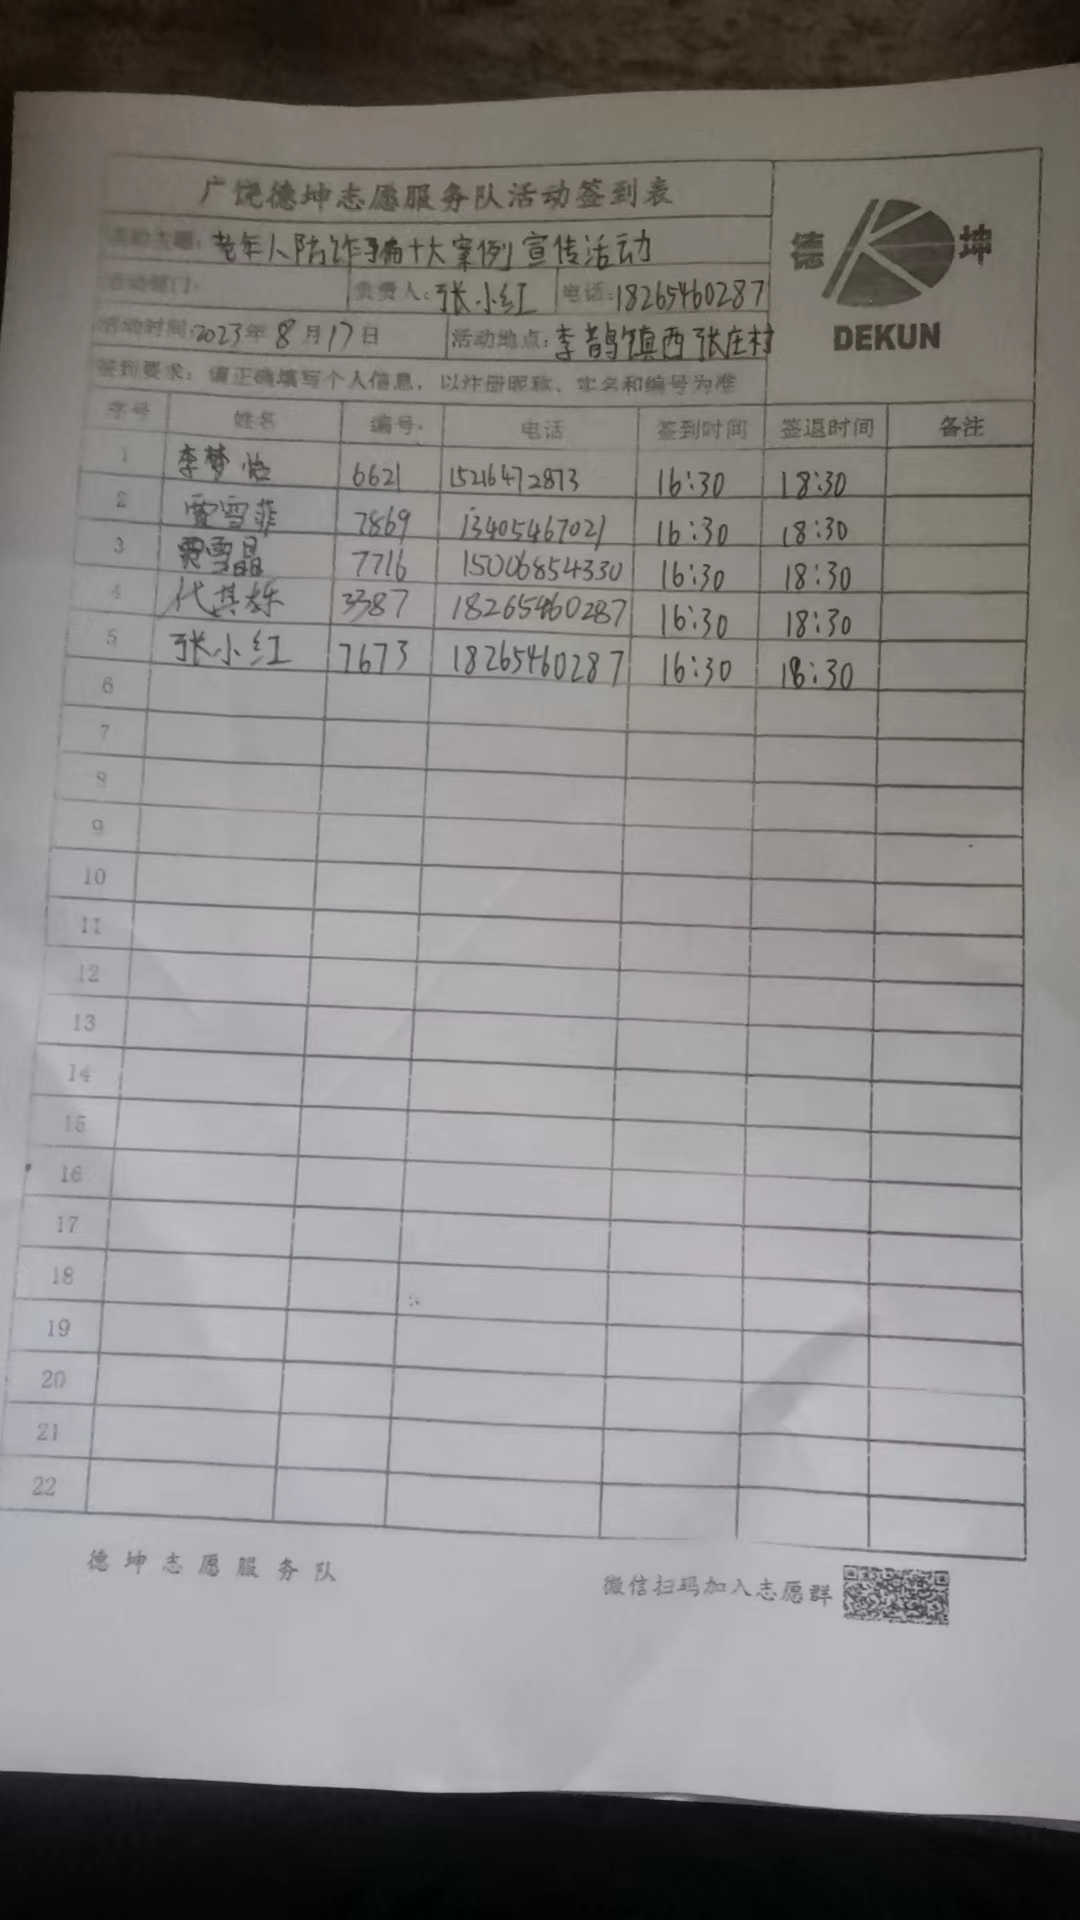 广饶德坤志愿服务队活动签到表
活动主题：老年人防诈骗十大案例宣传活动
活动部门： 负责人：张小红 电话：18265460287
活动时间：2023年8月17日 活动地点：李鹊镇西张庄村
德 坤
DEKUN
签到要求：请正确填写个人信息，以注册昵称、实名和编号为准
序号 姓名 编号 电话 签到时间 签退时间 备注
1 李梦怡 6621 15216472873 16:30 18:30
2 贾雪菲 7869 13405467021 16:30 18:30
3 贾雪晶 7716 15006854330 16:30 18:30
4 代其栋 3387 18265460287 16:30 18:30
5 张小红 7673 18265460287 16:30 18:30
6
7
8
9
10
11
12
13
14
15
16
17
18
19
20
21
22
德坤志愿服务队 微信扫码加入志愿群